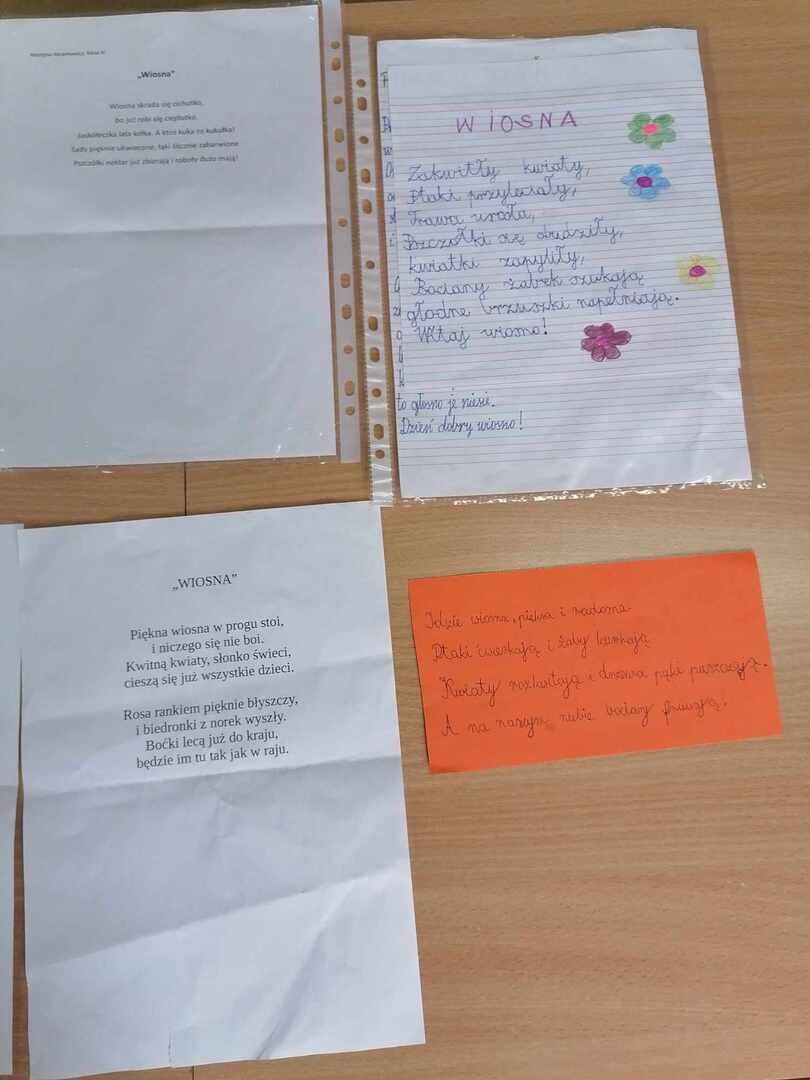 „Wiosna"
Wiosna skrada się cichutko,
bo już robi się cieplutko.
Jaskółeczka lata kółka. A ktoś kuka to kukułka!
Sady pięknie ukwiecone, łąki ślicznie zabarwione
Pszczółki nektar już zbierają i roboty dużo mają!
WIOSNA
Zakwitły kwiaty,
Ptaki przyleciały,
Trawa urosła,
Pszczółki się obudziły,
kwiatki zapyliły,
Bociany żabek szukają
głodne brzuszki napełniają.
Witaj wiosno!
to głośno je niesie.
Dzień dobry wiosno!
„WIOSNA”
Piękna wiosna w progu stoi,
i niczego się nie boi.
Kwitną kwiaty, słonko świeci,
cieszą się już wszystkie dzieci.
Rosa rankiem pięknie błyszczy,
i biedronki z norek wyszły.
Boćki lecą już do kraju,
będzie im tu tak jak w raju.
Idzie wiosna, piękna i radosna
Ptaki ćwierkają i żaby kumkają
Kwiaty rozkwitają i drzewa pąki puszczają.
A na naszym niebie bociany fruwają!